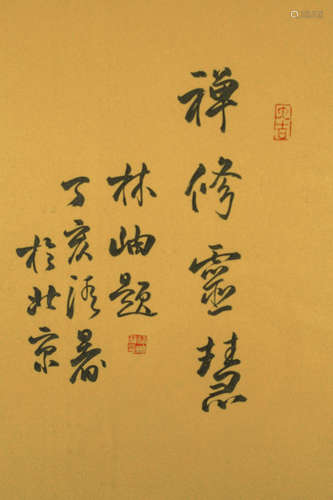 禅修靈慧
林岫題
丁亥清暑
於北京